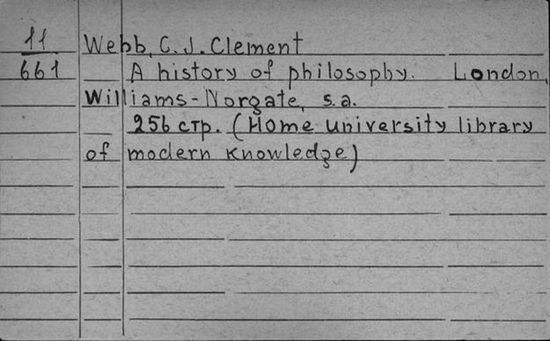 11 Webb, C. J. Clement
661 A history of philosophy. London,
Williams-Norgate, s.a.
256 стр. (Home university library
of modern knowledge)